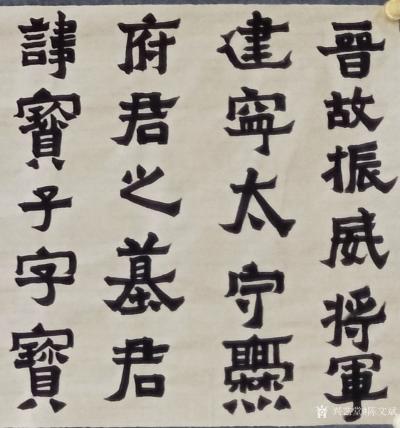 晉故振威將軍
建寧太守爨
府君之墓君
諱寶子字寶
兴艺堂#陈文斌